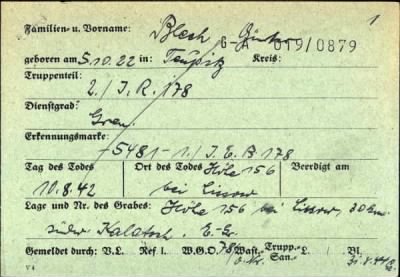 1
Familien- u. Vorname: Blech Günter
G-A 019/0879
geboren am 5.10.22 in: Teupitz Kreis:
Truppenteil:
2./J.R. 178
Dienstgrad:
Gren.
Erkennungsmarke:
-5481- 1./J.E.B 178
Tag des Todes Ort des Todes Höhe 156 Beerdigt am
10.8.42 bei Lissow
Lage und Nr. des Grabes: Höhe 156 bei Lissow, 30 km
südw. Kalatsch. E.-Gr.
Gemeldet durch: V.L. Ref. I. W.G.O. 78 Wast. Trupp. San. L. Bl.